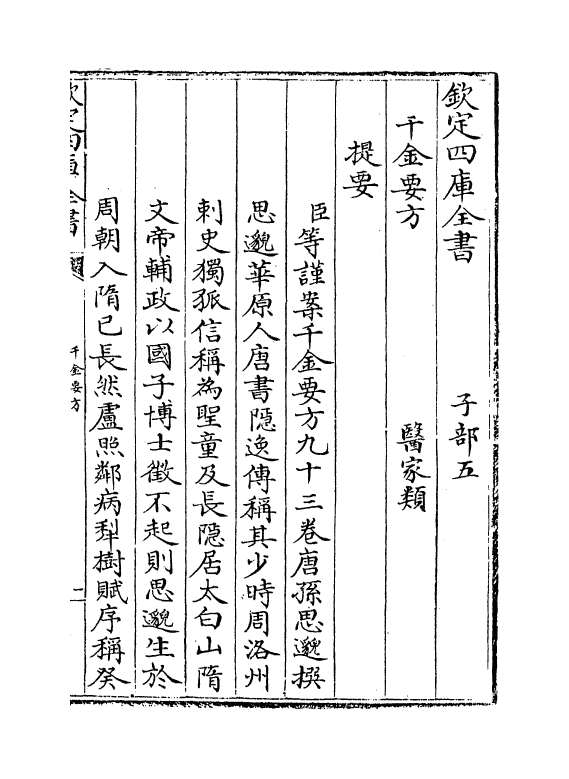 欽定四庫全書　子部五
千金要方　醫家類
提要
臣等謹案千金要方九十三卷唐孫思邈撰
思邈華原人唐書隱逸傳稱其少時周洛州
刺史獨孤信稱為聖童及長隱居太白山隋
文帝輔政以國子博士徵不起則思邈生於
周朝入隋已長然盧照鄰病犁樹賦序稱癸
欽定四庫全書
千金要方
二